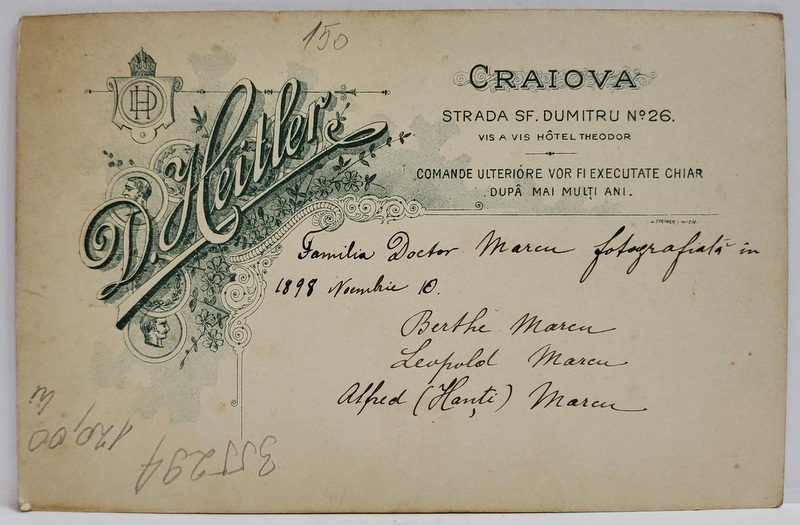 150
HD
D. Heitler
CRAIOVA
STRADA SF. DUMITRU Nº 26.
VIS A VIS HÔTEL THEODOR
COMANDE ULTERIÓRE VOR FI EXECUTATE CHIAR
DUPĂ MAI MULȚI ANI.
Familia Doctor Marcu fotografiată în
1898 Noembrie 10.
Berthe Marcu
Leopold Marcu
Alfred (Hanți) Marcu
120,00 lei
355294